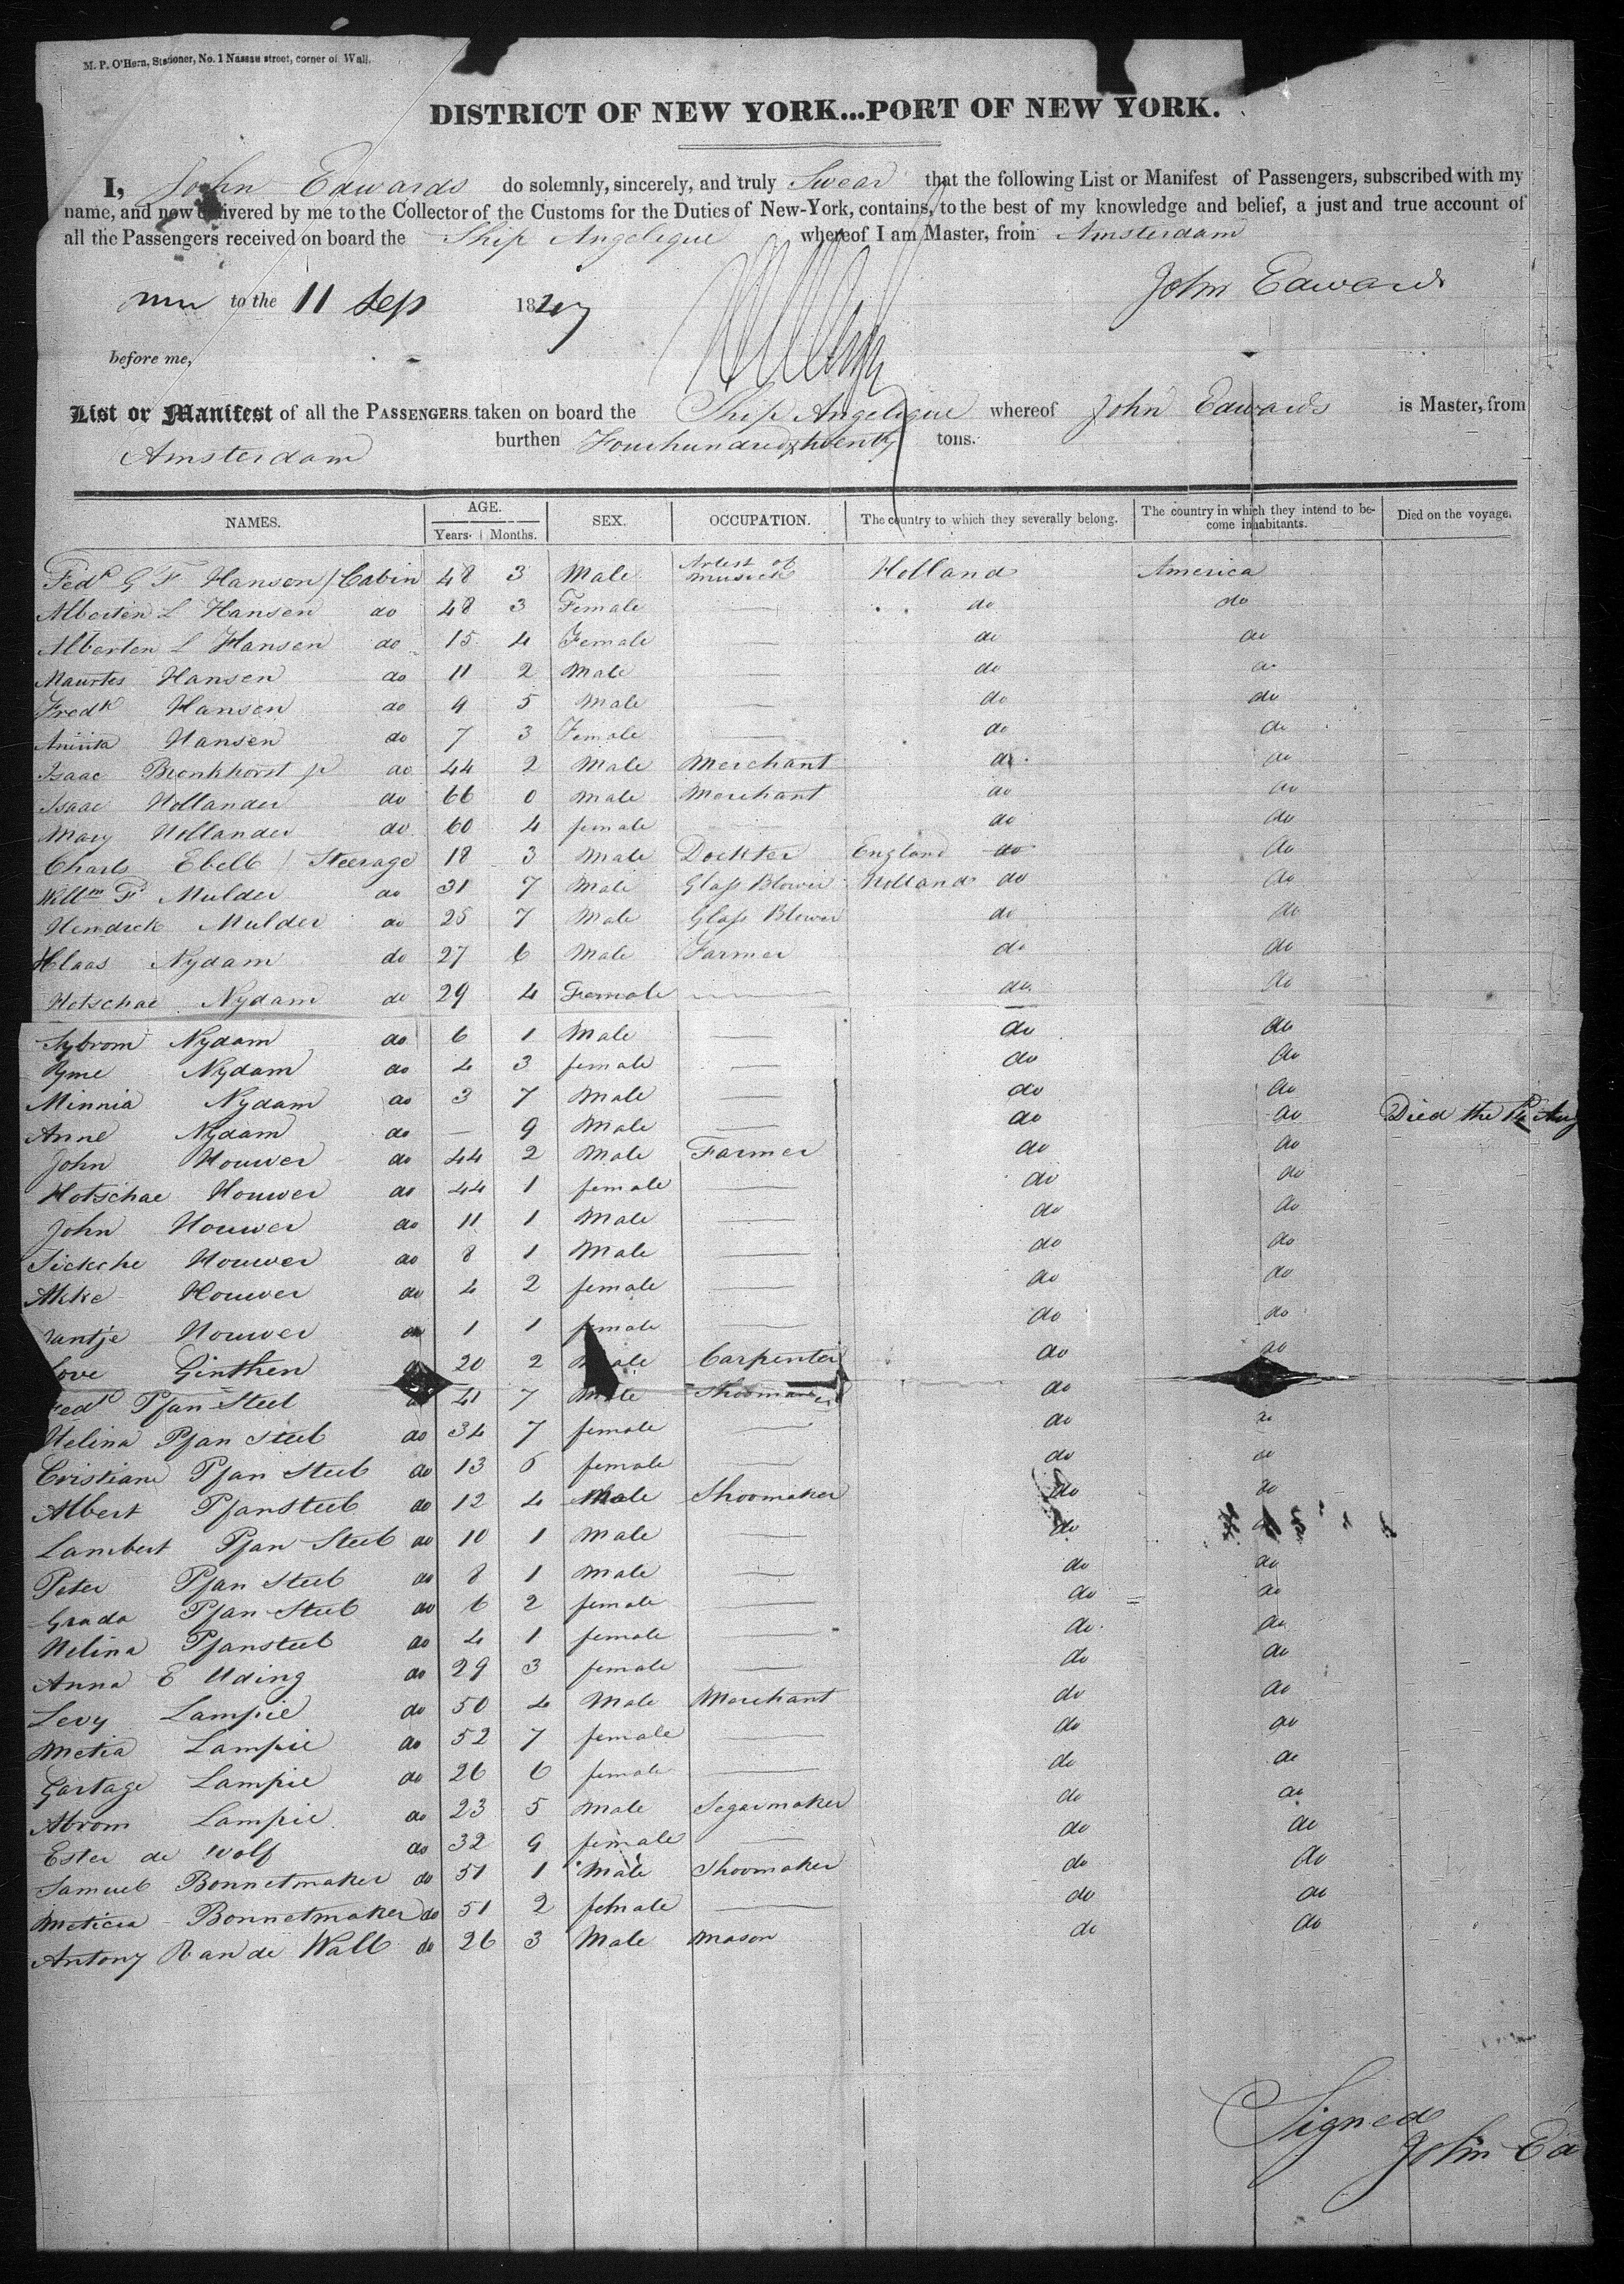 M. P. O'Hern, Stationer, No. 1 Nassau street, corner of Wall.
DISTRICT OF NEW YORK...PORT OF NEW YORK.
I, John Edwards do solemnly, sincerely, and truly Swear that the following List or Manifest of Passengers, subscribed with my
name, and now delivered by me to the Collector of the Customs for the Duties of New-York, contains, to the best of my knowledge and belief, a just and true account of
all the Passengers received on board the Ship Angelique whereof I am Master, from Amsterdam
John Edwards
to the 11 Sep 1827
before me,
List or Manifest of all the PASSENGERS taken on board the Ship Angelique whereof John Edwards is Master, from
Amsterdam burthen Fourhundred & twenty tons.
NAMES. AGE. SEX. OCCUPATION. The country to which they severally belong. The country in which they intend to become inhabitants. Died on the voyage.
Years. Months.
Fedk G F Hansen / Cabin 48 3 Male Artest of musick Holland America
Alberten L Hansen do 48 3 Female — do do
Alberten L Hansen do 15 4 Female — do do
Maurtes Hansen do 11 2 Male — do do
Fredk Hansen do 9 5 Male — do do
Hansen do 7 3 Female — do do
Isaac Bronkhorst jr do 44 2 Male Merchant do do
Isaac Hollander do 66 0 Male Merchant do do
Mary Hollander do 60 4 female — do do
Charls Ebell / Steerage 18 3 Male Dockter England do do
Willm F Mulder do 31 7 Male Glass Blower Holland do do
Hendrick Mulder do 25 7 Male Glass Blower do do
Klaas Nydam do 27 6 Male Farmer do do
Hotschae Nydam do 29 4 Female — do do
Sybrom Nydam do 6 1 Male — do do
Yme Nydam do 4 3 female — do do
Minnia Nydam do 3 7 Male — do do
Anne Nydam do — 9 Male — do do Died the Aug
John Houwer do 44 2 Male Farmer do do
Hotschae Houwer do 44 1 female — do do
John Houwer do 11 1 Male — do do
Sickche Houwer do 8 1 Male — do do
Akke Houwer do 4 2 female — do do
antje Houwer do 1 1 female — do do
ove Ginthen 20 2 Male Carpenter do do
edk Pfan Steel 41 7 Male Shoomaker do
Helina Pfan Steel do 34 7 female — do do
Cristiane Pfan Steel do 13 6 female — do do
Albert Pfansteel do 12 4 Male Shoomaker do do
Lambert Pfan Steel do 10 1 Male — do do
Peter Pfan Steel do 8 1 Male — do do
Grada Pfan Steel do 6 2 female — do do
Helina Pfansteel do 4 1 female — do do
Anna E Uding do 29 3 female — do do
Levy Lampie do 50 4 Male Merchant do do
Metia Lampie do 52 7 female — do do
Gartage Lampie do 26 6 female — do do
Abrom Lampie do 23 5 Male Segarmaker do do
Ester de Wolf do 32 9 female — do do
Samuel Bonnetmaker do 51 1 Male Shoomaker do do
Meticia Bonnetmaker do 51 2 female — do do
Antony de Wall do 26 3 Male Mason do do
Signed
John Ed